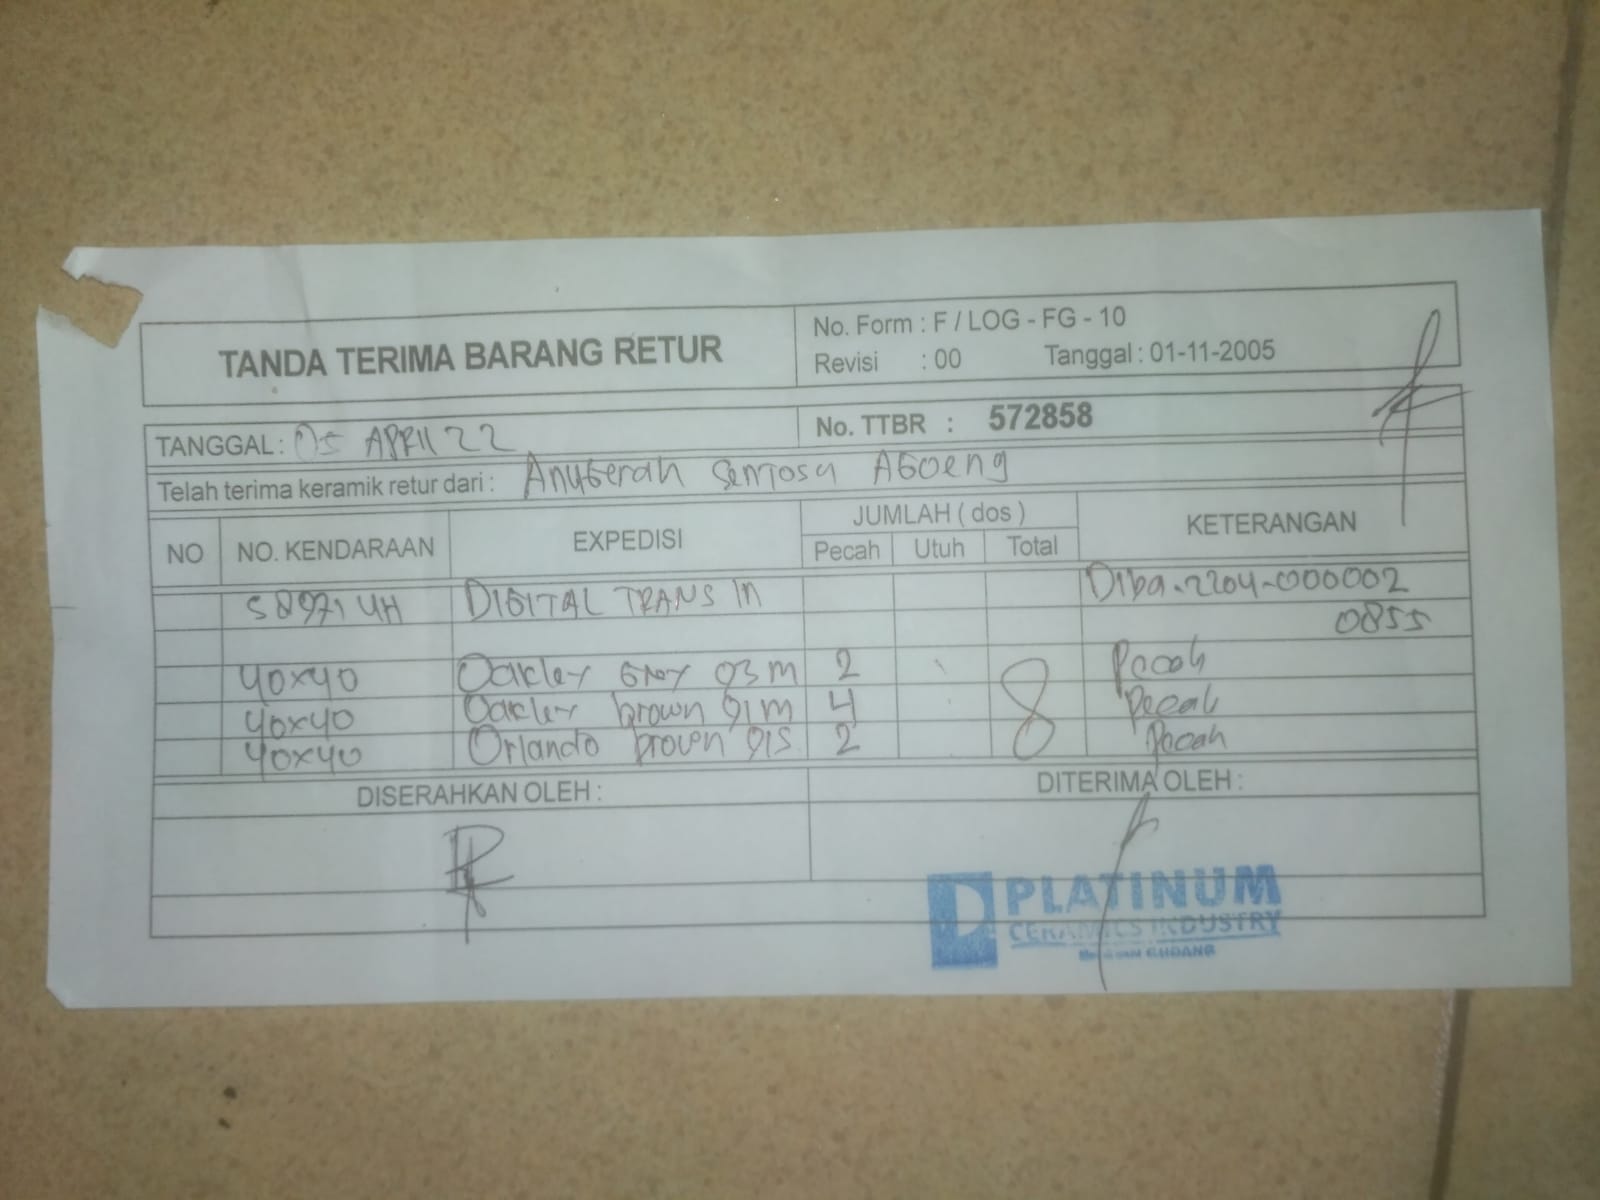 TANDA TERIMA BARANG RETUR
No. Form : F / LOG - FG - 10
Revisi : 00 Tanggal : 01-11-2005
TANGGAL : 05 APRIL 22
No. TTBR : 572858
Telah terima keramik retur dari : Anugerah Sentosa AGoeng
NO NO. KENDARAAN EXPEDISI JUMLAH ( dos ) KETERANGAN
Pecah Utuh Total
S 8971 UH DIGITAL TRANS IN Diba.2204-000002
0855
40x40 Oakley Grey 03 M 2 Pecah
40x40 Oakley brown 01 M 4 8 Pecah
40x40 Orlando brown 01S 2 Pecah
DISERAHKAN OLEH : DITERIMA OLEH :
PLATINUM
CERAMICS INDUSTRY
GUDANG